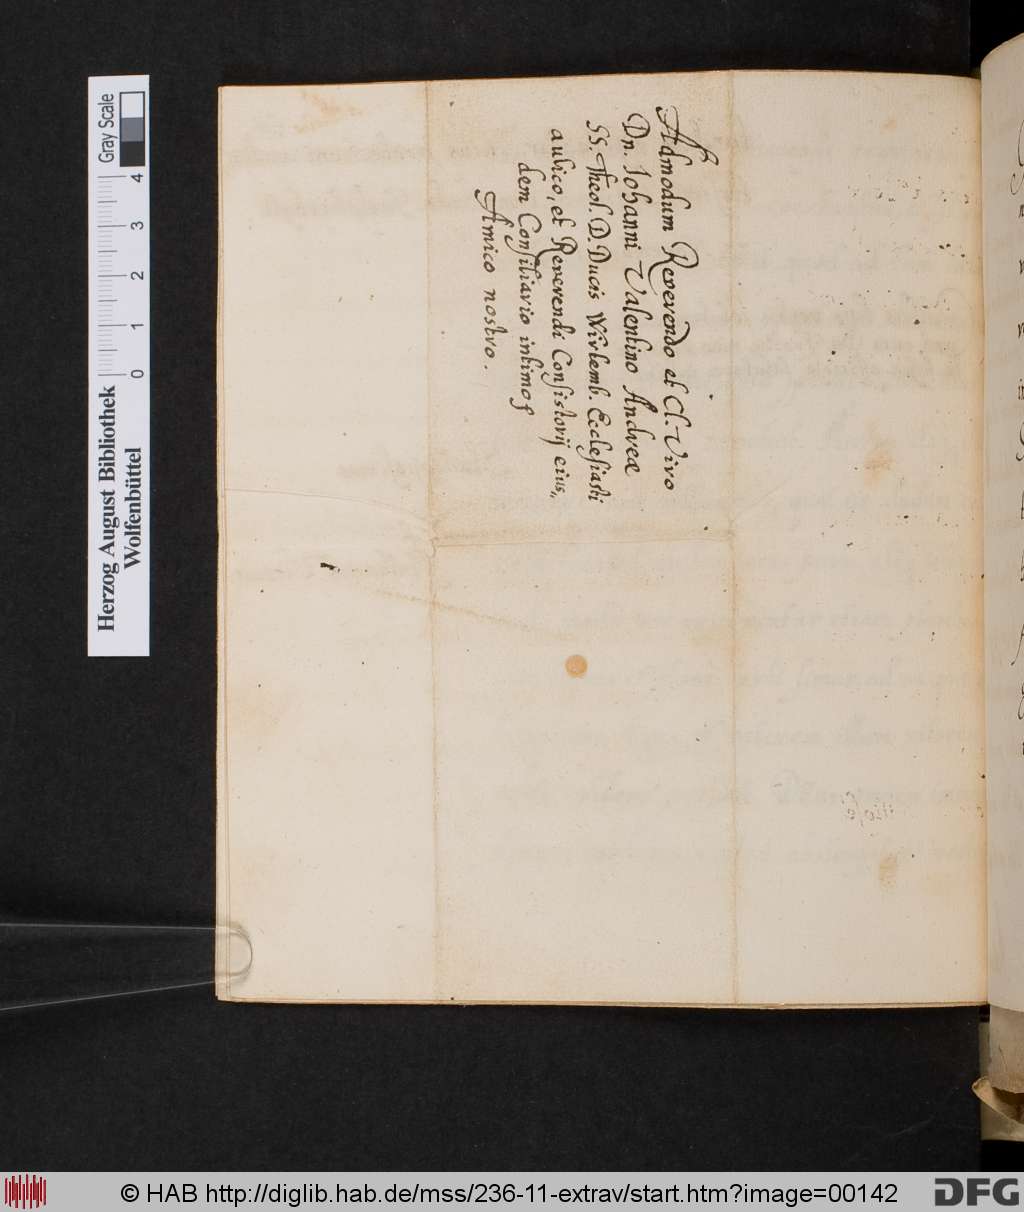 Admodum Reverendo et Cl. Viro
Dn. Iohanni Valentino Andreæ
SS. Theol. D. Ducis Wirtemb. Ecclesiasti
aulico, et Reverendi Consistorij eius„
dem Consiliario intimo,
Amico nostro.
Herzog August Bibliothek
Wolfenbüttel
0 1 2 3 4
Gray Scale
© HAB http://diglib.hab.de/mss/236-11-extrav/start.htm?image=00142
DFG